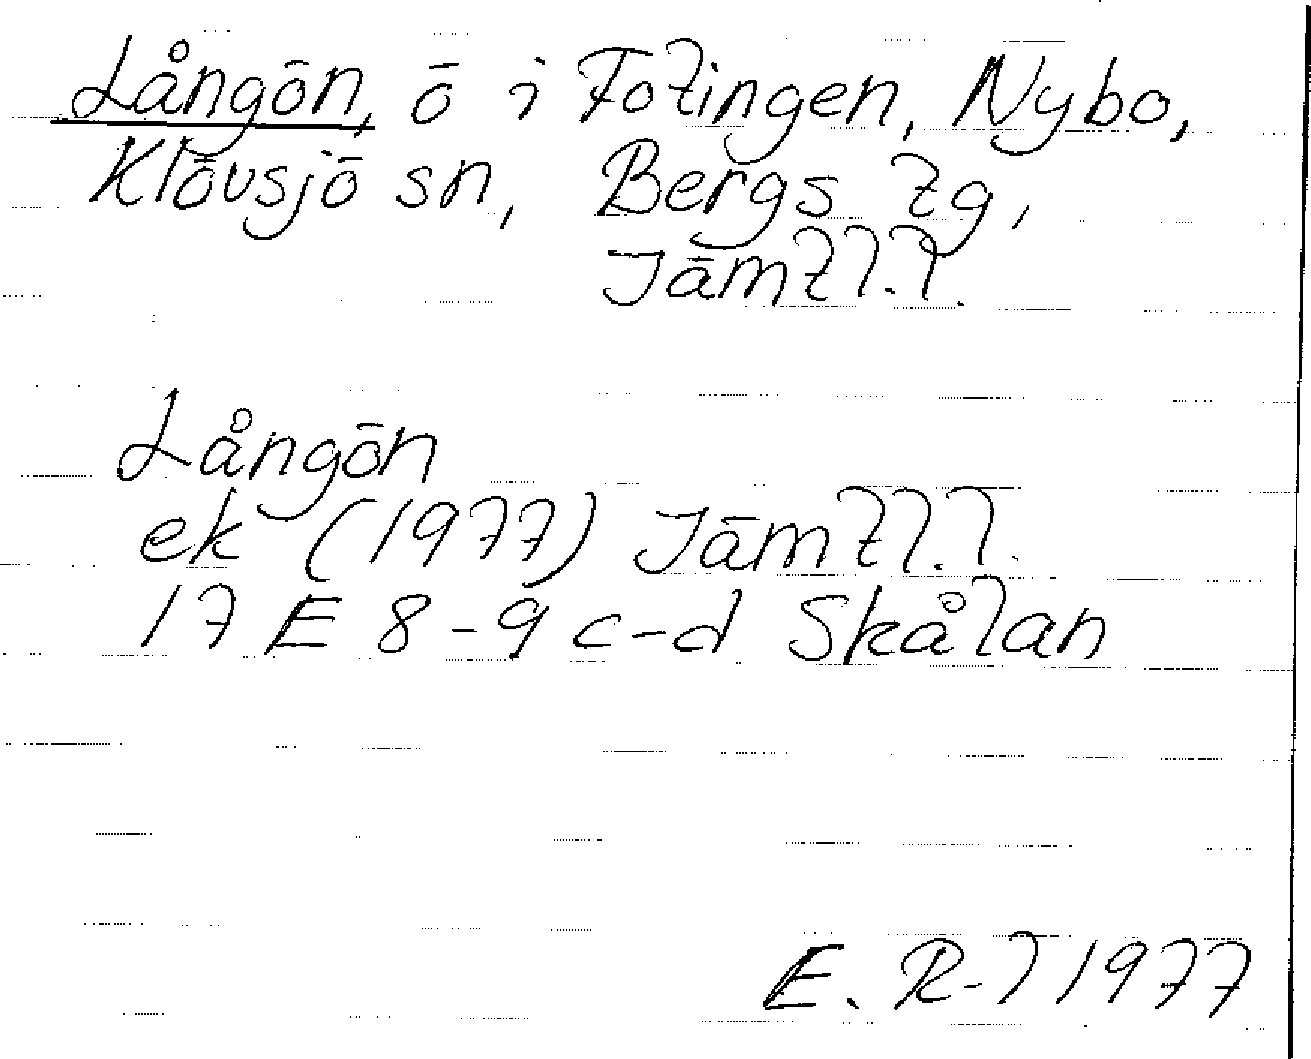 Långön, ö i Fotingen, Nybo,
Klövsjö sn, Bergs tg,
Jämtl.l.
Långön
ek (1977) Jämtl.l.
17 E 8-9 c-d Skålan
E. R-l 1977